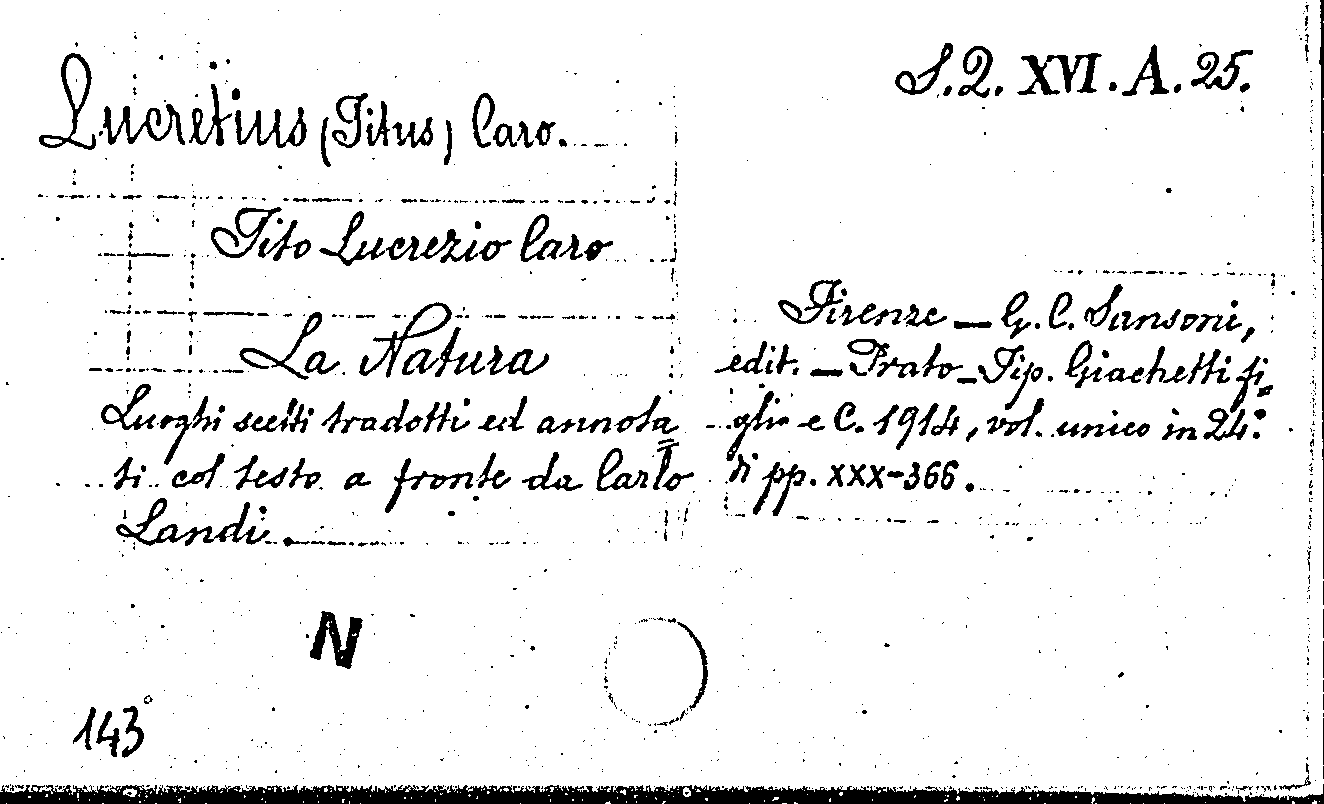 S.2. XVI. A. 25.
Lucretius (Titus) Caro.
Tito Lucrezio Caro
La Natura
Luoghi scelti tradotti ed annota=
ti col testo a fronte da Carlo
Landi.
Firenze — G. C. Sansoni,
edit. — Prato — Tip. Giachetti fi=
glio e C. 1914, vol. unico in 24°.
di pp. XXX-366.
N
143